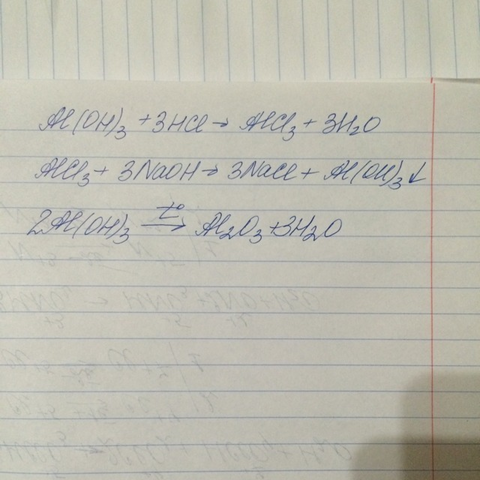 Al(OH)₃ + 3HCl → AlCl₃ + 3H₂O
AlCl₃ + 3NaOH → 3NaCl + Al(OH)₃↓
2Al(OH)₃ t°→ Al₂O₃ + 3H₂O